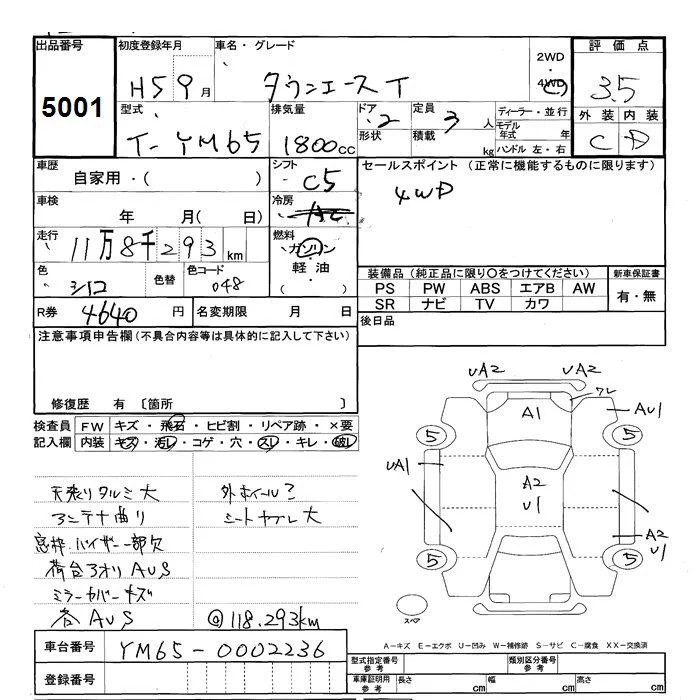 出品番号 初度登録年月 車名・グレード 2WD 評価点
5001 H5 9月 タウンエースT 4WD 3.5
型式 排気量 ドア 定員 ディーラー・並行 外装 内装
T-YM65 1800cc 2 3人 モデル年式 年 C D
形状 積載 kg ハンドル 左・右
車歴 シフト セールスポイント (正常に機能するものに限ります)
自家用・( ) C5 4WD
車検 年 月( 日) 冷房 AC
走行 11万8千293km 燃料 ガソリン
軽油
色 シロ 色替 色コード 048 ( ・ ) 装備品 (純正品に限り○をつけてください) 新車保証書
PS PW ABS エアB AW 有・無
R券 4640円 名変期限 月 日 SR ナビ TV カワ
注意事項申告欄 (不具合内容等は具体的に記入して下さい) 後日品
修復歴 有 〔箇所 〕
検査員 FW キズ・飛石・ヒビ割・リペア跡・×要
記入欄 内装 キズ・汚レ・コゲ・穴・スレ・キレ・破レ
天張りタルミ大 外ホイール
アンテナ曲り シートヤブレ大
窓枠バイザー一部欠
荷台アオリAUS
ミラーカバーキズ
各AUS @118.293km
UA2 UA2
ワレ
A1 AU1
5 5
UA1
A2
U1
A2
U1
5 5
スペア
A-キズ E-エクボ U-凹み W-補修跡 S-サビ C-腐食 XX-交換済
車台番号 YM65-0002236
型式指定番号 参考 類別区分番号 参考
登録番号 車庫証明用 参考 長さ cm 幅 cm 高さ cm